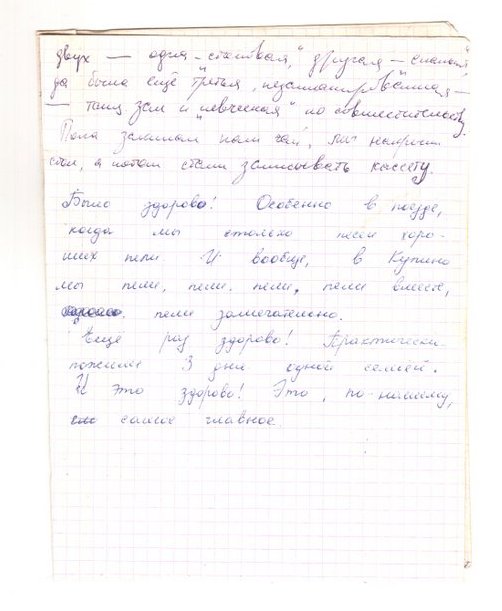 двух — одна - "столовая", другая — "спальня",
да была ещё третья, незапланированная —
— танц зал и "певческая" по совместительству.
Пока закипал нам чай, мы накрыли
стол, а потом стали записывать кассету.
Было здорово! Особенно в поезде,
когда мы столько песен хоро-
ших пели И вообще, в Купино
мы пели, пели, пели, пели вместе,
пели замечательно.
Ещё раз здорово! Практически
пожили 3 дня одной семьёй.
И это здорово! Это, по-нашему,
самое главное.